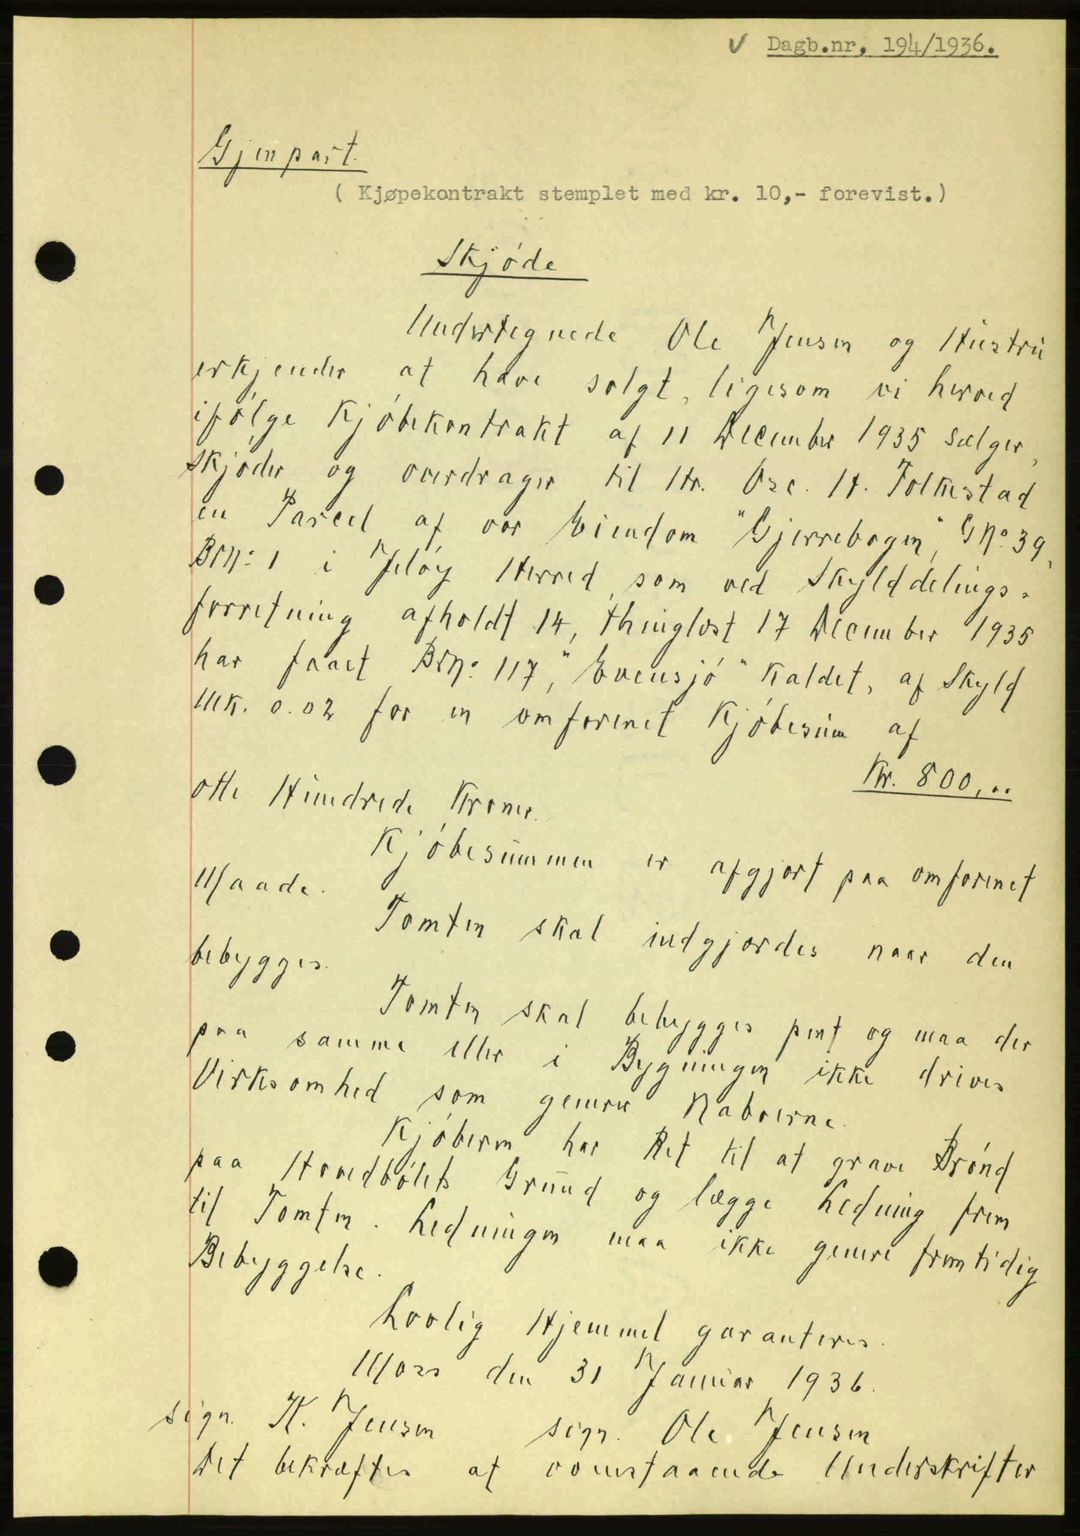 √ Dagb.nr. 194/1936.
Gjenpart.
( Kjøpekontrakt stemplet med kr. 10,- forevist.)
Skjøde
Undertegnede Ole Jensen og Hustru
erkjender at have solgt, ligesom vi herved
ifølge Kjøbekontrakt af 11 December 1935 sælger,
skjøder og overdrager til Hr. Osc. H. Folkestad
en Parcel af vor Eiendom "Gjerrebogen", GNo. 39,
BrN: 1 i Jeløy Herred, som ved Skylddelings-
forretning afholdt 14, thinglæst 17 December 1935
har faaet BrN: 117, "Evensjø" kaldet, af Skyld
Mk. 0.02 for en omforenet Kjøbesum af
Kr. 800,..
otte Hundrede Kroner.
Kjøbesummen er afgjort paa omforenet
Maade.
Tomten skal indgjærdes naar den
bebygges.
Tomten skal bebygges pent og maa der
paa samme eller i Bygningen ikke drives
Virksomhed som generer Naboerne.
Kjøberen har Ret til at grave Brønd
paa Hovedbølets Grund og lægge Ledning frem
til Tomten. Ledningen maa ikke genere fremtidig
Bebyggelse.
Lovlig Hjemmel garanteres.
Moss den 31 Januar 1936.
sign. K. Jensen sign. Ole Jensen
Det bekræftes at ovenstaaende Underskrifter